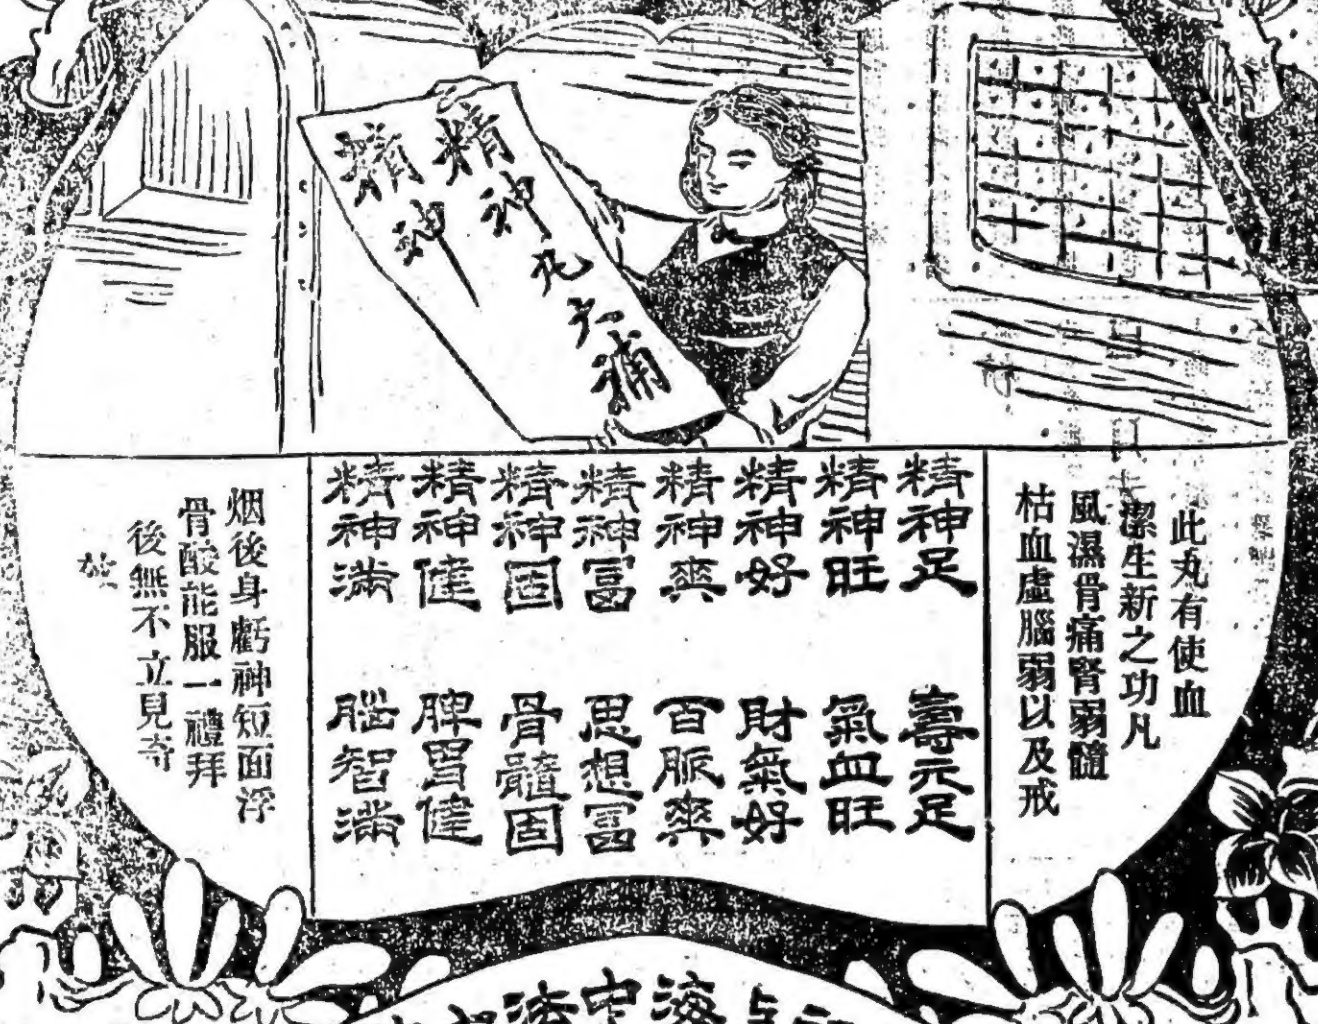 精神丸大補
精神
此丸有使血
潔生新之功凡
風濕骨痛腎弱髓
枯血虛腦弱以及戒
精神足 壽元足
精神旺 氣血旺
精神好 財氣好
精神爽 百脈爽
精神富 思想富
精神固 骨髓固
精神健 脾胃健
精神滿 腦智滿
烟後身虧神短面浮
骨酸能服一禮拜
後無不立見奇
海中法